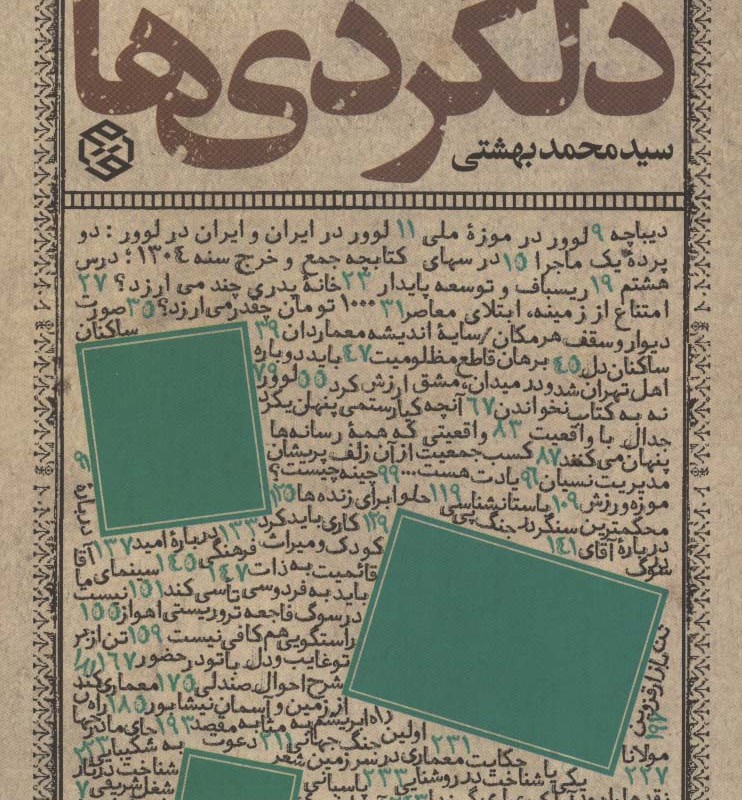 دلکردی‌ها
سیدمحمدبهشتی
دیباچه ۹ لوور در موزهٔ ملی ۱۱ لوور در ایران و ایران در لوور : دو
پردهٔ یک ماجرا ۱۵ درسهای کتابچه جمع و خرج سنه ۱۳۰۴ ؛ درس
هشتم ۱۹ ریسباف و توسعه پایدار ۲۳ خانهٔ پدری چند می ارزد؟ ۲۷
امتناع از زمینه، ابتلای معاصر ۳۱ ۱۰۰۰ تومان چقدر می ارزد؟ ۳۵ صورت
دیوار و سقف هر مکان/سایهٔ اندیشه معماردان ۳۹ ساکنان
ساکنان دل ۴۵ برهان قاطع مظلومیت ۴۷ باید دوباره
اهل تهران شد و در میدان، مشق ارزش کرد ۵۵ لوور ۷۹
نه به کتاب نخواندن ۶۷ آنچه کیارستمی پنهان نکرد
جدال با واقعیت ۸۳ واقعیتی که همهٔ رسانه‌ها
پنهان می‌کنند ۸۷ کسب جمعیت از آن زلف پریشان ۹۱
مدیریت نسیان ۹۶ یادت هست... ۹۹ چینه چیست؟
موزه و ورزش ۱۰۹ باستانشناسی ۱۱۹ حلوا برای زنده ها ۱۲۵ دربارهٔ
محکمترین سنگر در جنگ پی ۱۲۹ کاری باید کرد ۱۳۳ دربارهٔ امید ۱۳۷ آقا
دربارهٔ آقای ۱۴۱ کودک و میراث فرهنگی ۱۴۵ سینمای ما
سوگ قائمیت به ذات ۱۴۷ باید به فردوسی تأسی کند ۱۵۱ نیست
در سوگ فاجعه تروریستی اهواز ۱۵۵
راستگویی هم کافی نیست ۱۵۹ تن از بر
تو غایب و دل با تو در حضور ۱۶۷
شرح احوال صندلی ۱۷۵ معماری کند
از زمین و آسمان نیشابور ۱۸۵ راه
راه ابریشم به مثابه مقصد ۱۹۳ جای مادر
اولین جنگ جهانی ۲۱۱ دعوت به شکیبایی ۲۲۳
مولانا ۲۲۷ حکایت معماری در سرزمین شعر ۲۳۱ شناخت دربار
یکی یا شناخت در روشنایی ۲۳۳ باستانی شغل شریفی